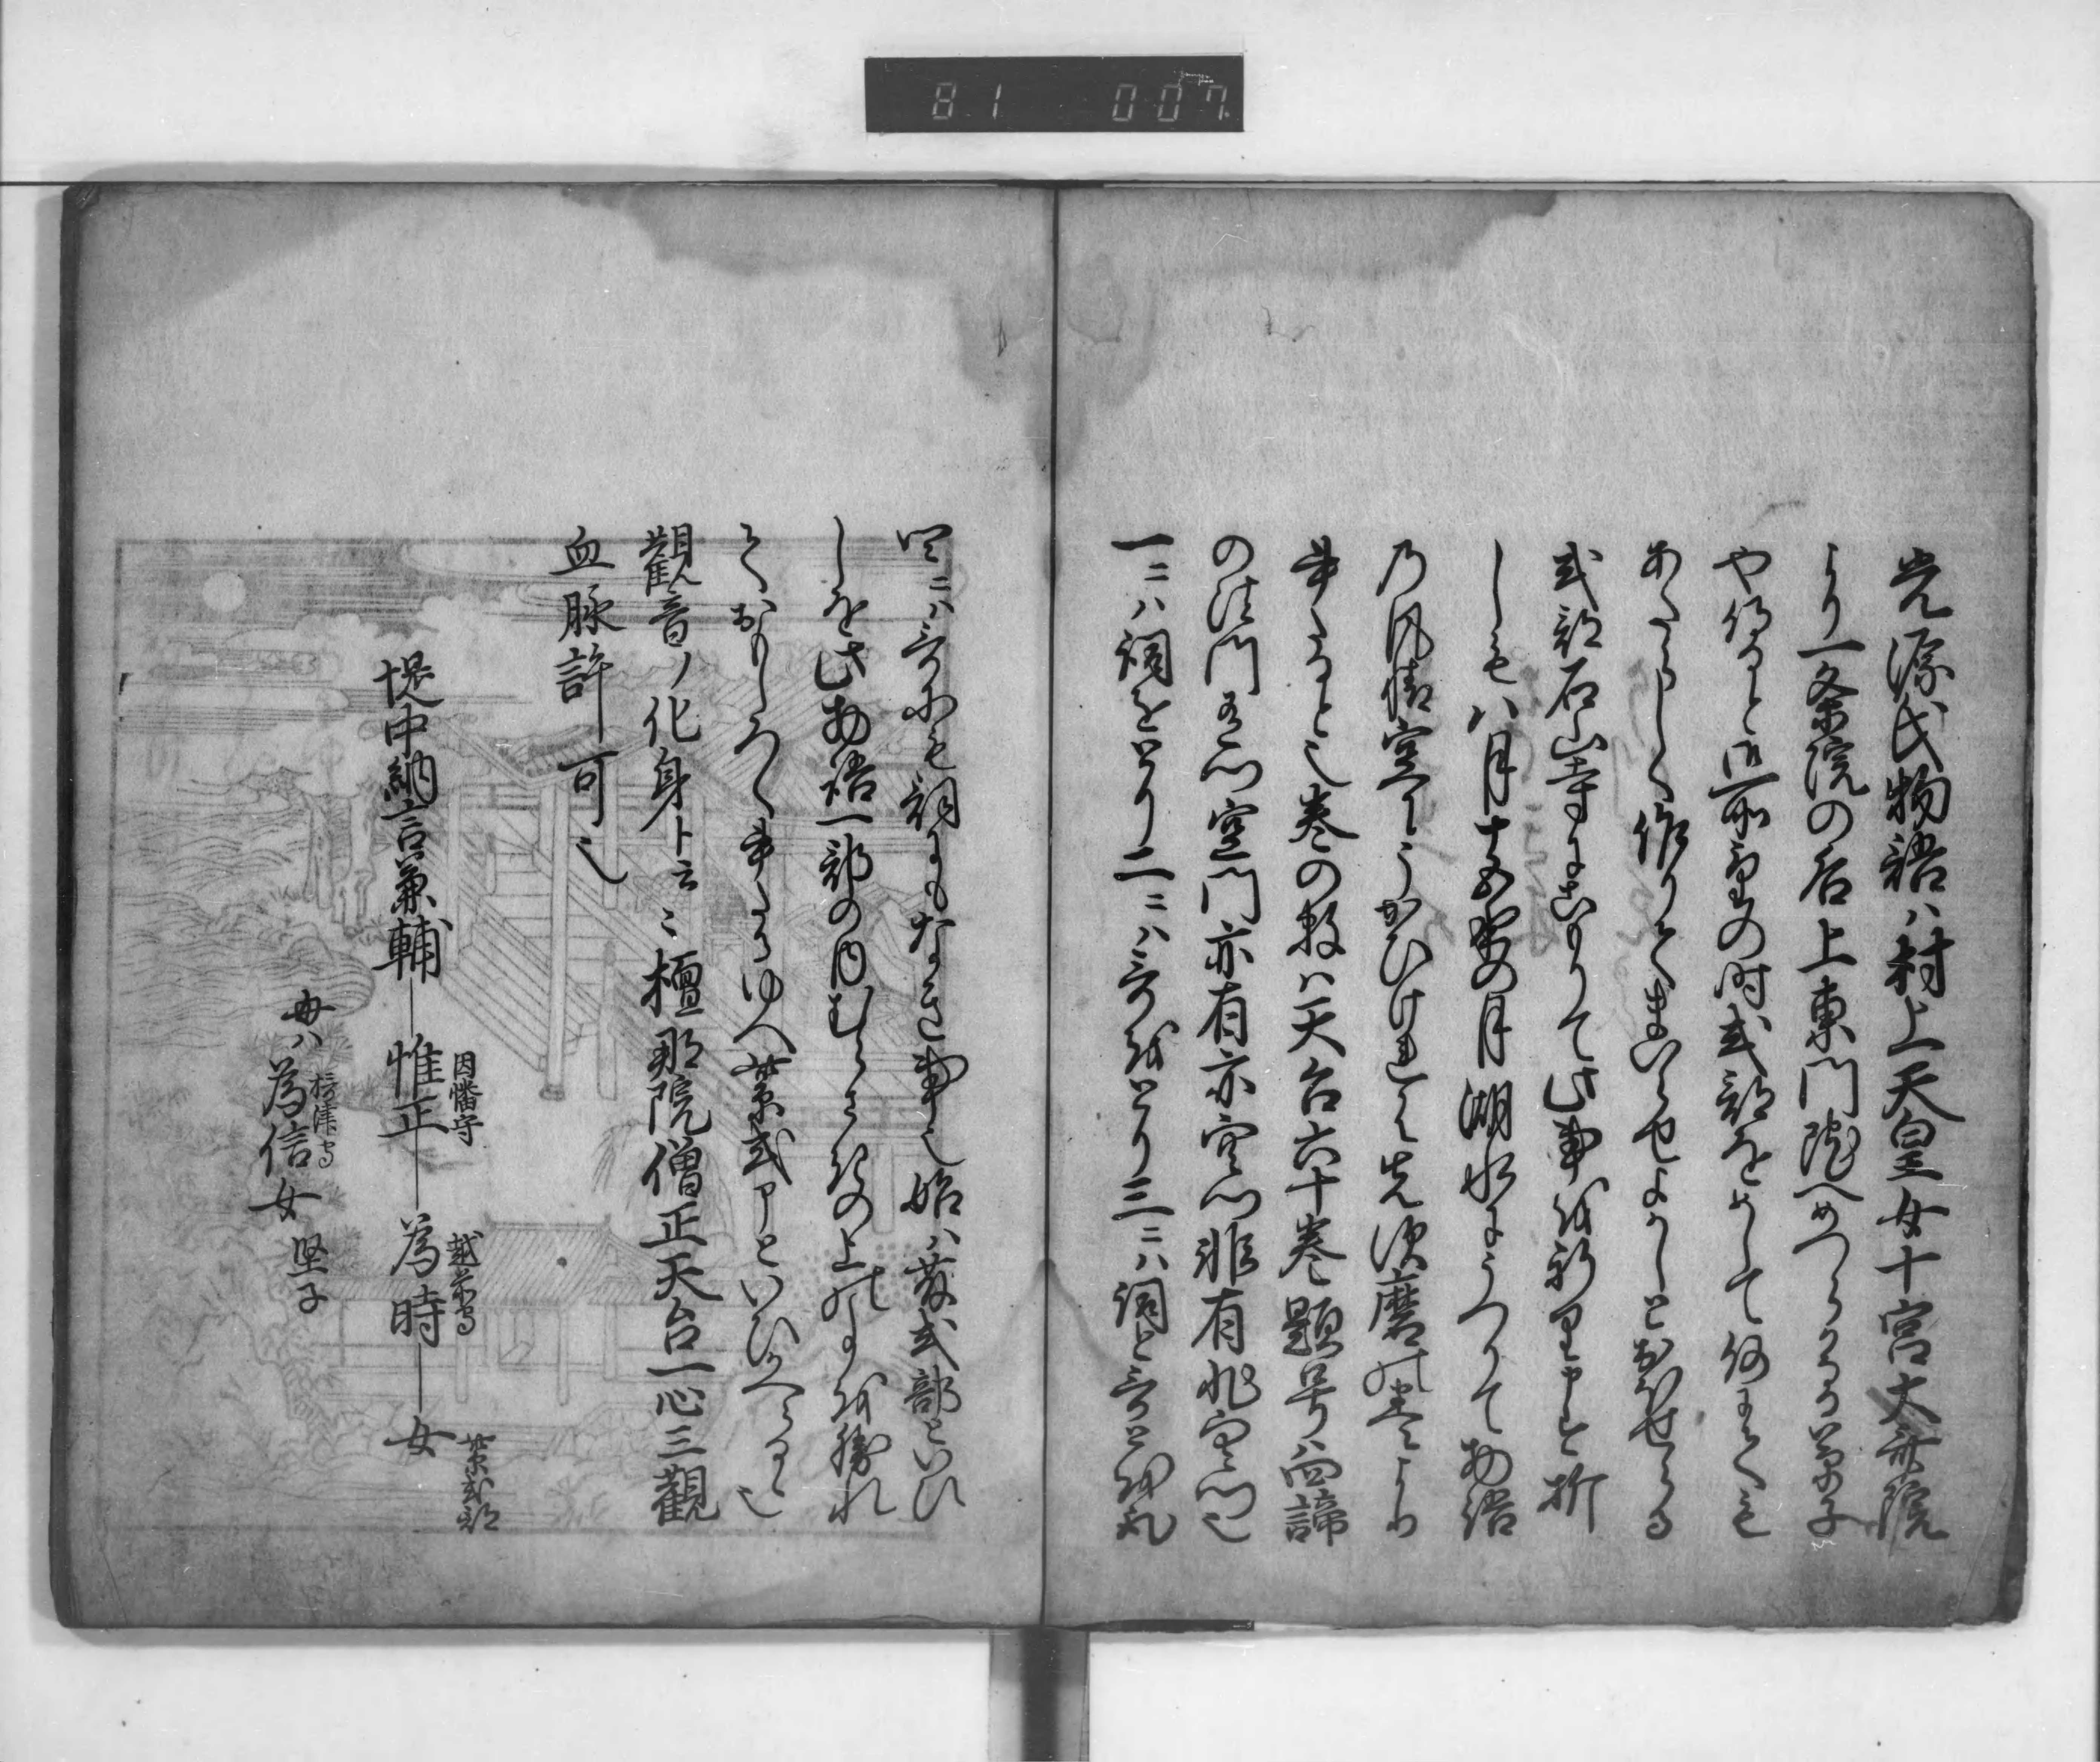 81 007
光源氏物語ハ村上天皇女十宮大斎院
より一条院の后上東門院へめつらかなる草子
や侍ると御所望の時式部をめして何にても
あたらしく作りてまいらせよかしとおほせらる
式部石山寺にこもりて此事を祈り申すに折
しも八月十五夜の月湖水にうつりて物語
の風情空にうかひけれはまつ須磨の巻より
書たると也巻の数ハ天台六十巻題号ハ四諦
の法門有門空門亦有亦空門非有非空門也
一ニハ詞をとり二ニハ哥をとり三ニハ詞と哥とを取
四ニハ哥にも詞にもなき事也始ハ藤式部といひ
しを此物語一部の内むらさきの上の事を勝れ
ておもしろく書たるゆへ紫式部といひかへらるゝ也
観音ノ化身ト云ミ檀那院僧正天台一心三観
血脉許可也
堤中納言兼輔―惟正―為時―女
因幡守
越前守
紫式部
母ハ為信女 堅子
摂津守